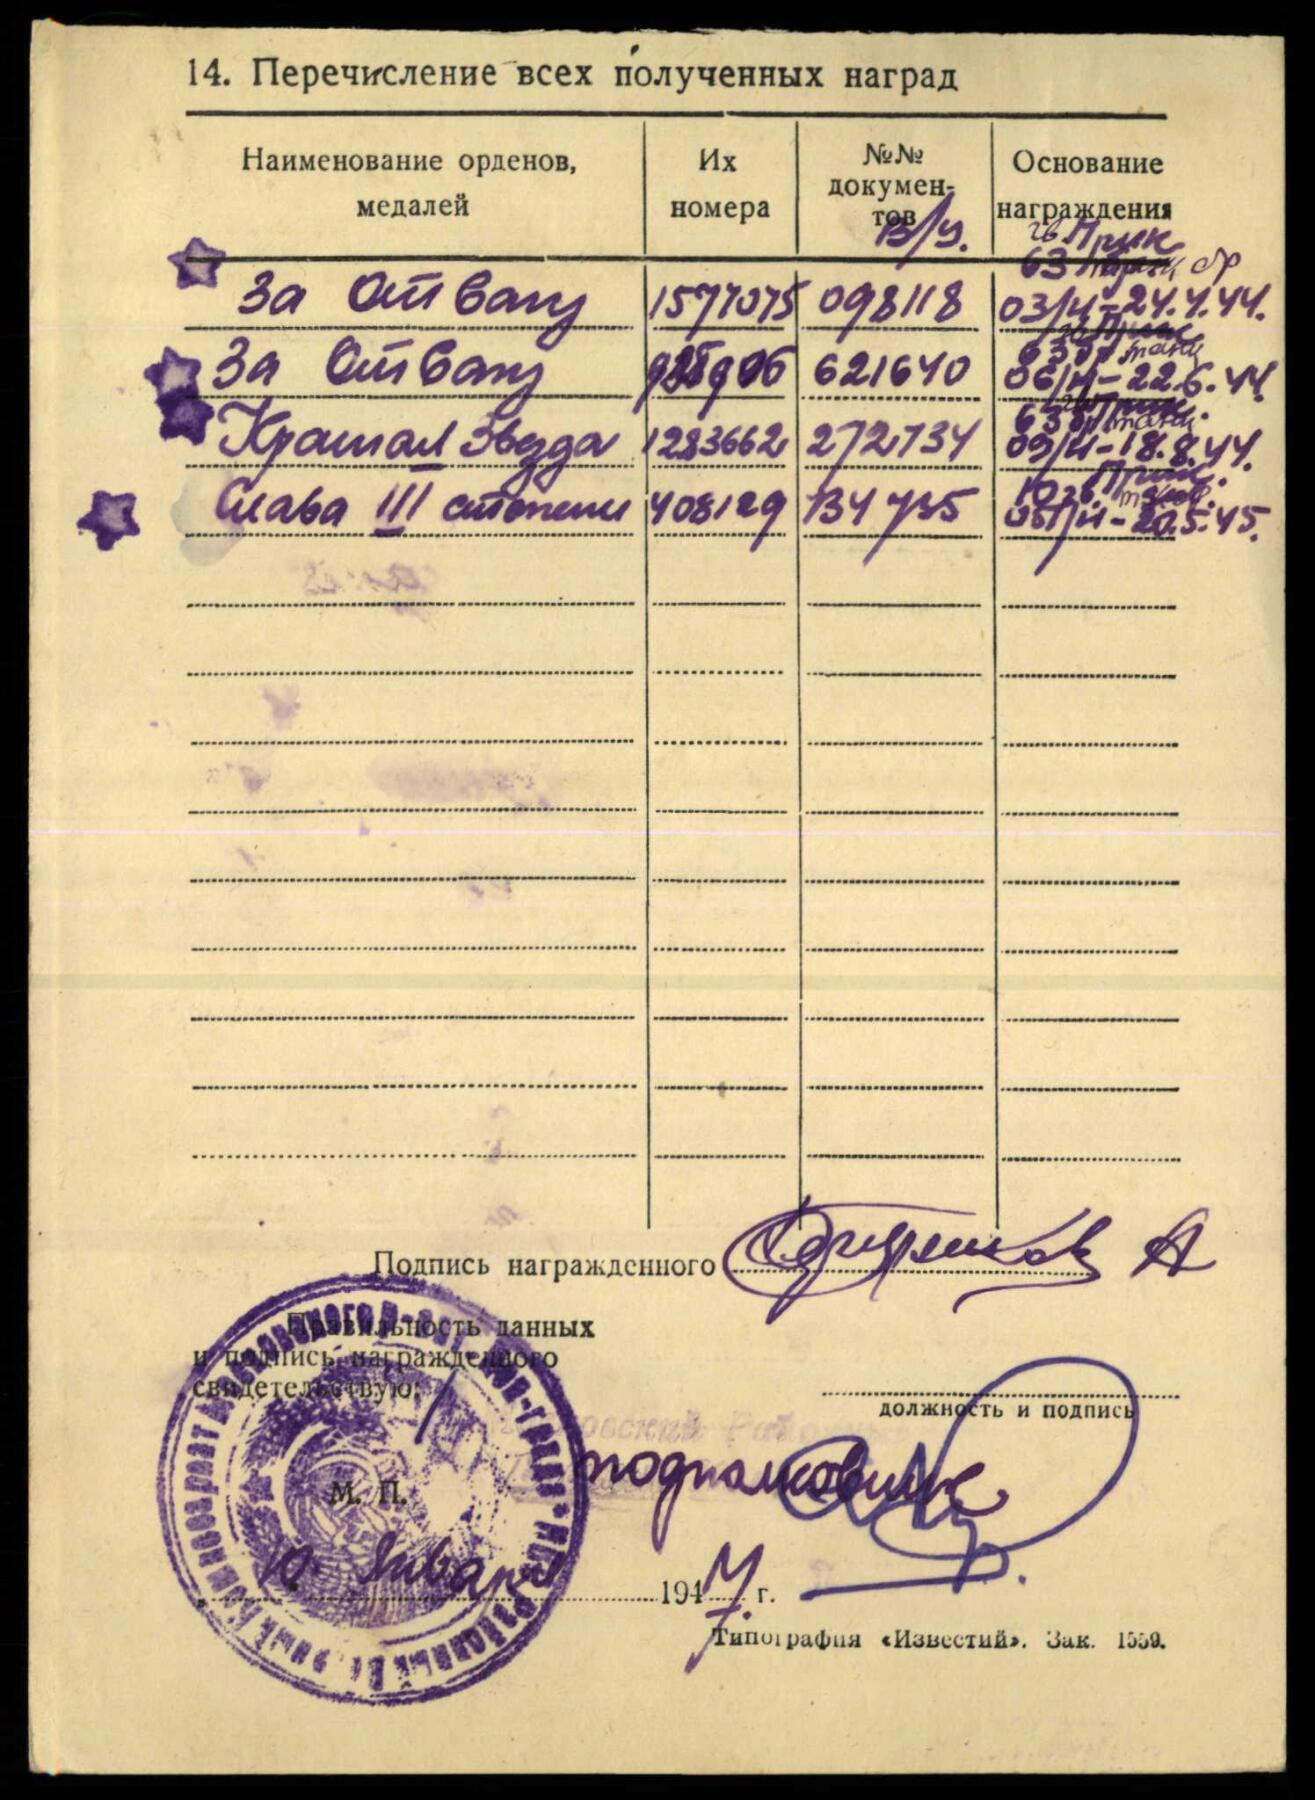 14. Перечисление всех полученных наград
Наименование орденов, медалей
Их номера
№№ документов
Основание награждения
В/У.
гв Прик
63 бр
За Отвагу 1577075 098118 03/н-24.4.44.
63 бр танк
За Отвагу 621640 06/н-22.6.44
63 бр танк
Красная Звезда 1283662 272734 09/н-18.8.44.
Прик.
10 гв. танк.
Слава III степени 408129 134735 051/н-20.5.45.
Подпись награжденного А
Правильность данных
и подпись награжденного
свидетельствую:
должность и подпись
подполковник
М. П.
10. Января 1947 г.
Типография «Известий». Зак. 1559.